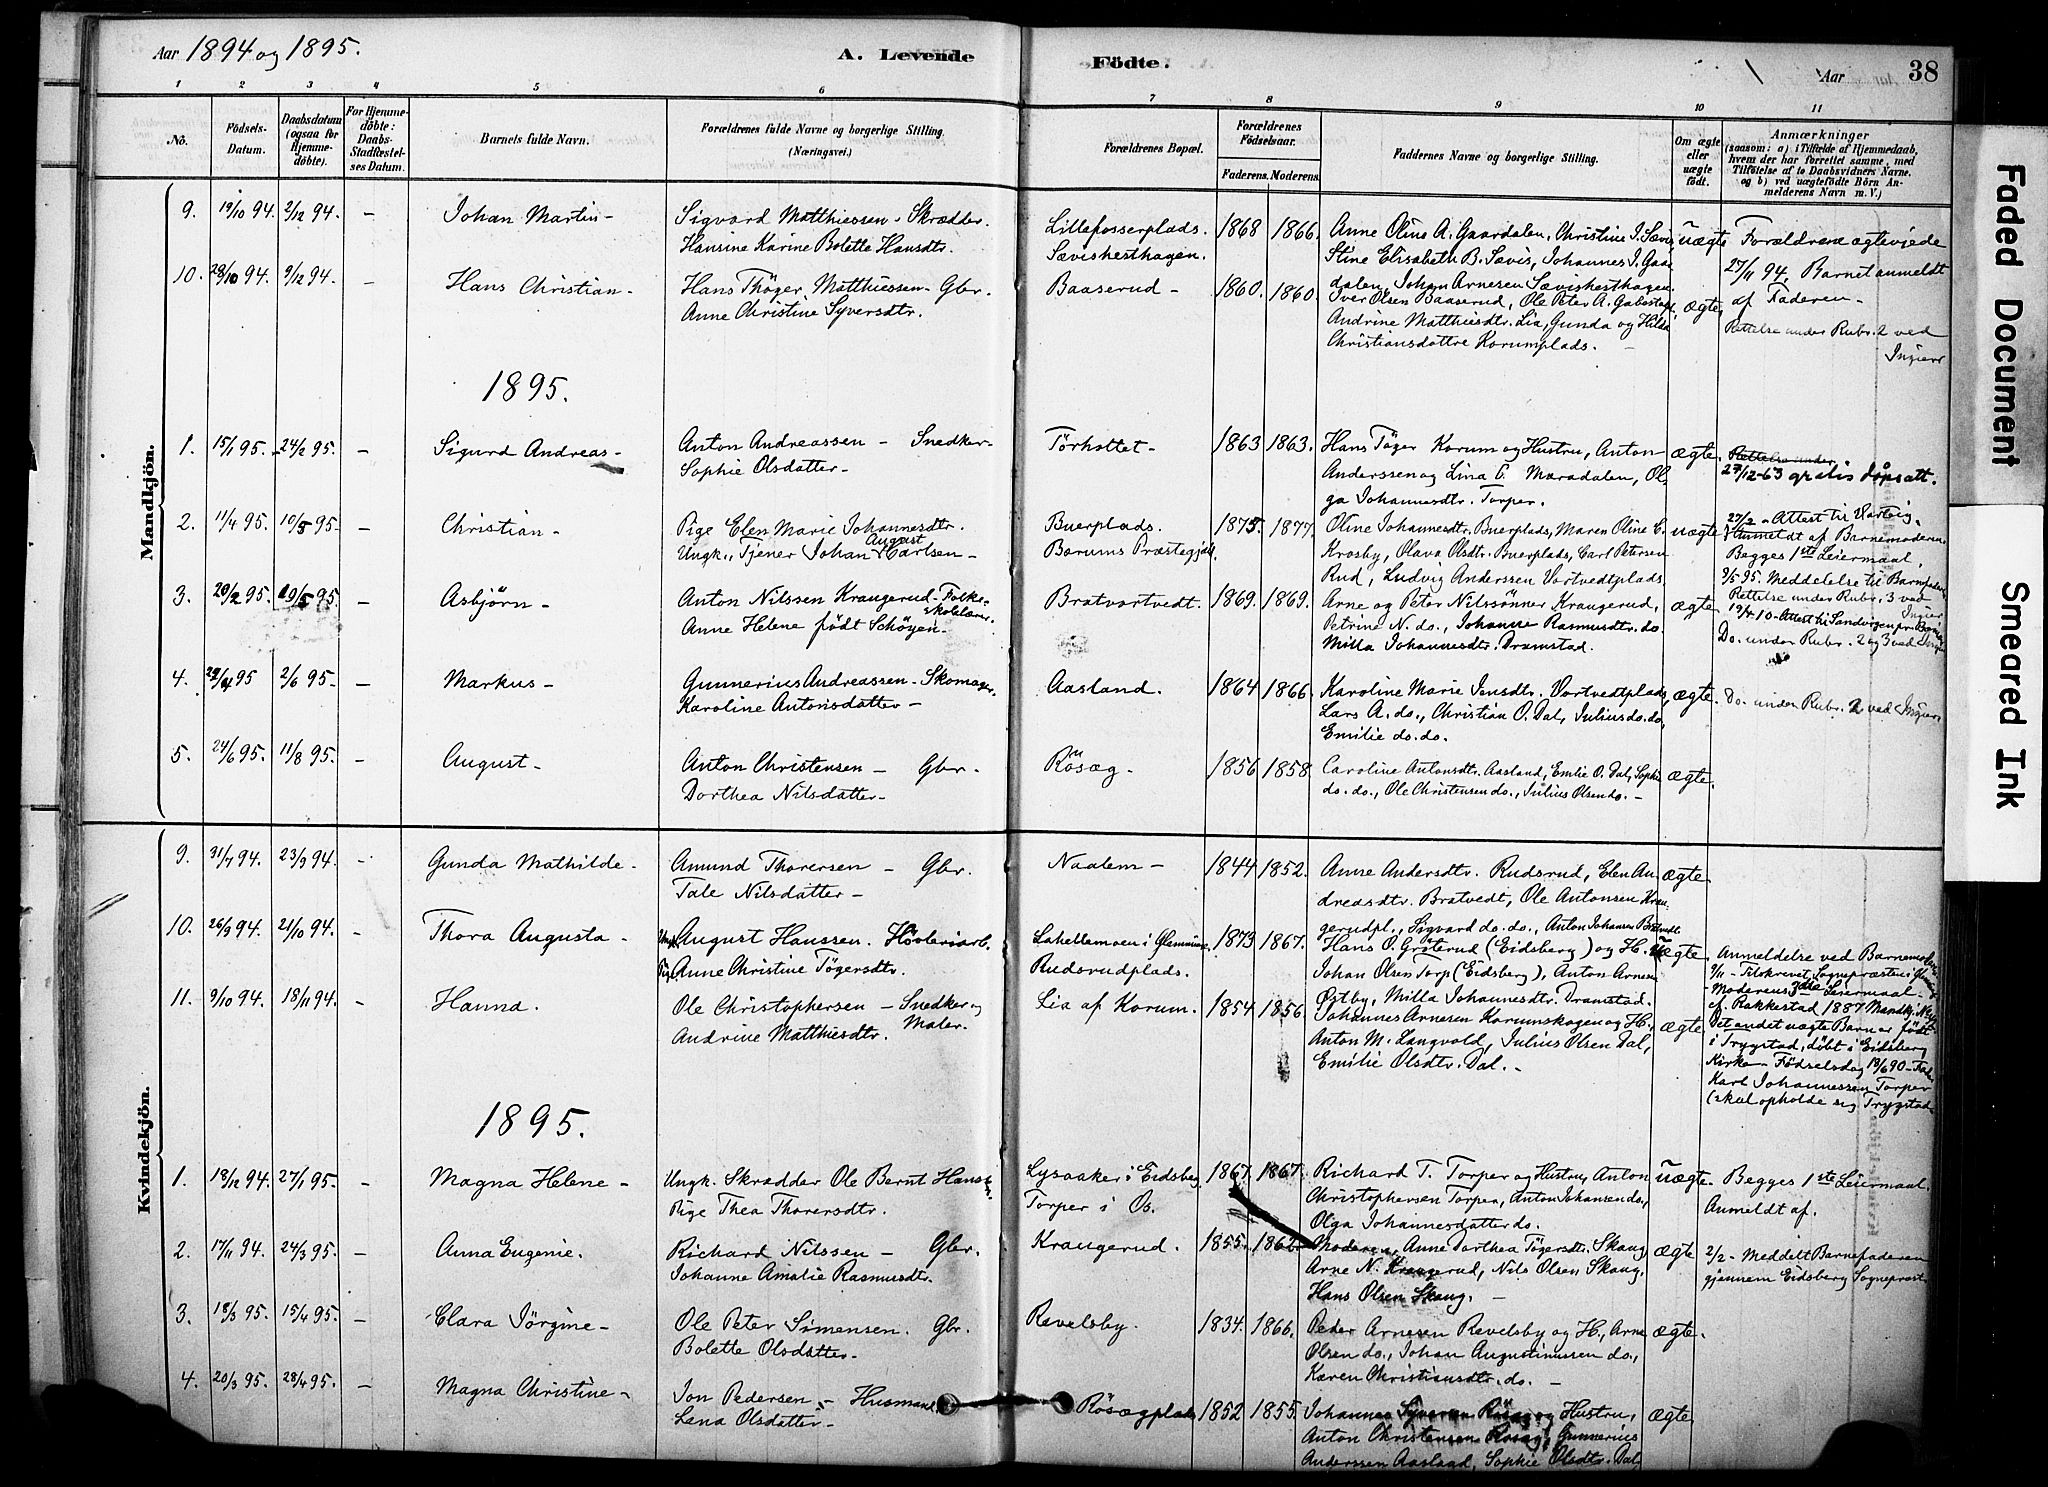 Aar 1894 og 1895.
A. Levende Fødte.
Aar 38
1 2 3 4 5 6 7 8 9 10 11
No.
Fødsels-Datum.
Daabsdatum (ogsaa for Hjemmedøbte).
For Hjemmedøbte: Daabs-Stadfæstelses Datum.
Barnets fulde Navn.
Forældrenes fulde Navne og borgerlige Stilling.
(Næringsvei.)
Forældrenes Bopæl.
Forældrenes Fødselsaar.
Faderens. Moderens.
Faddernes Navne og borgerlige Stilling.
Om ægte eller uægte født.
Anmærkninger
(saasom: a) i Tilfælde af Hjemmedaab, hvem der har forrettet samme, med Tilføielse af to Daabsvidners Navne. og b) ved uægtefødte Børn Anmelderens Navn m. V.)
Mandkjön.
9. 19/10 94. 2/12 94. - Johan Martin - Sigvard Matthiessen - Skrædder. Lillefosserplads. 1868 1866. Anne Olius A. Gaardalen, Christine J. Sævis, uægte Forældrene ægteviede
Hansine Karine Bolette Hansdtr. Sævishesthagen. Stine Elisabeth B. Sævis, Johannes J. Gaa- 27/11 94. Barnet anmeldt
dalen, Johan Arnesen Sævishesthagen. af Faderen -
10. 28/10 94. 9/12 94. - Hans Christian - Hans Thøger Matthiessen - Gbr. Baaserud - 1860. 1860. Iver Olsen Baaserud, Ole Peter A. ægte.
Anne Christine Syversdtr. Andrine Matthisdtr. Lia, Gunda og Hilda Rettelse under Rubr. 2 ved
Christiansdøttre Korumplads. - Ingier
1895.
1. 15/1 95. 24/2 95. - Sigurd Andreas - Anton Andreassen - Snedker - Tørholtet - 1863 1863. Hans Tøger Korum og Hustru, Anton ægte. Rettelse under
Sophie Olsdatter - Anderssen og Lina C. Maradalen, Ol- 27/12-63 gratis dåpsatt.
ga Johannesdtr. Torper.
2. 11/4 95. 10/5 95 - Christian - Pige Elen Marie Johannesdtr. Buerplads. 1875 1877. Oline Johannesdtr. Buerplads, Maren Oline E. uægte 27/2 - Attest til
Ungk., Tjener Johan August Karlsen - Borums Præstegjæld Krosby, Olava Olsdtr. Buerplads, Carl Petersen Anmeldt af Barnemoderen.
Rud, Ludvig Anderssen Vortvedtplads. Begges 1ste Leiermaal.
9/5 95. Meddelelse til Barnefaderen
3. 20/2 95. 19/5 95. - Asbjörn - Anton Nilssen Kraugerud - Folke- Bratvortvedt. 1869. 1869. Arne og Peter Nilssönner Kraugerud, ægte Rettelse under Rubr. 3 ved
skolelærer. Ingier
Anne Helene født Schöyen - Petrine N. do., Johanne Rasmusdtr. do. 19/4 10 - Attest til
Milla Johannesdtr. Dramstad. Do. under Rubr. 2 og 3 ved Ingier
4. 22/4 95 2/6 95 - - Markus - Gunnerius Andreassen - Skomager. Aasland. 1864 1866. Karoline Marie Jensdtr. Vortvedtplads, ægte. Do. under Rubr. 2 ved Ingier
Karoline Antonsdatter - Lars A. do., Christian O. Dal, Julius do. do,
Emilie do. do.
5. 24/6 95. 11/8 95. - August - Anton Christensen - Gbr. Rösæg - 1856 1858. Caroline Antonsdtr. Aasland, Emlie O. Dal, Sophie ægte.
Dorthea Nilsdatter - do. do., Ole Christensen do., Julius Olsen do. -
Kvindekjön.
9. 31/7 94. 23/9 94. - Gunda Mathilde - Amund Thorersen - Gbr. Naalem - 1844 1852. Anne Andersdtr. Rudsrud, Elen An- ægte
Tale Nilsdatter - dreasdtr. Bratvedt, Ole Antonsen Krau-
gerudpl., Sigvard do. do., Anton Johansen
10. 26/9 94. 21/10 94. - Thora Augusta - Ungk. August Hanssen. Høvleriarb. i Glemminge. 1873 1867. Hans O. Grøterud (Eidsberg) og H. uægte Anmeldelse ved Barnemoderen
Pige Anne Christine Tøgersdtr. Rudsrudplads. Johan Olsen Torp (Eidsberg), Anton Arnesen 9/11 - Tilskrevet Sognepræsten i
Østby, Milla Johannesdtr. Dramstad. Moderens 3die Leiermaal.
11. 9/10 94. 18/11 94. - Hanna. Ole Christophersen - Snedker og Lia af Korum. 1854 1856. Johannes Arnesen Korumskogen og H., ægte cf. Rakkestad 1887 Mandkj.
Maler.
Andrine Matthiesdtr. Anton M. Langvold, Julius Olsen Dal, Det andet uægte Barn er født
Emilie Olsdtr. Dal. - i Trygstad, døbt i Eidsberg
Kirke - Fødselsdag 13/6 90 -
Karl Johannessen Torper
(skal opholde sig Trygstad
1895.
1. 18/12 94. 27/1 95. - Magna Helene - Ungk. Skrædder Ole Bernt Hans- Lysaaker i Eidsberg 1867. 1867. Richard T. Torper og Hustru, Anton uægte. Begges 1ste Leiermaal.
Pige Thea Thorersdtr. Torper i Os. Christophersen Torper, Anton Johansen do., Anmeldt af.
Olga Johannesdatter do. Moderen.
2. 17/11 94. 24/3 95. - Anna Eugenie. Richard Nilssen - Gbr. Kraugerud. 1855. 1862. Anne Dorthea Tøgersdtr. Skaug ægte 2/2 - Meddelt Barnefaderen
Johanne Amalie Rasmusdtr. Arne N. Kraugerud, Nils Olsen Skaug, gjennem Eidsberg Sogneprest
Hans Olsen Skaug. -
3. 18/3 95. 15/4 95. - Clara Jörgine - Ole Peter Simensen. Gbr. Revelsby. 1834. 1866. Peder Arnesen Revelsby og H., Arne ægte.
Bolette Olsdatter - Olsen do., Johan Augustinussen do.,
Karen Christiansdtr. do. -
4. 20/3 95. 28/4 95. - Magna Christine - Jon Pedersen - Husmand Rösægplads 1852 1855. Johannes Syversen Rösæg og Hustru, ægte.
Lena Olsdatter - Anton Christensen Rosæg, Gunnerius
Anderssen Aaslaad, Sophie Olsdtr. Dal,
Faded Document
Smeared Ink